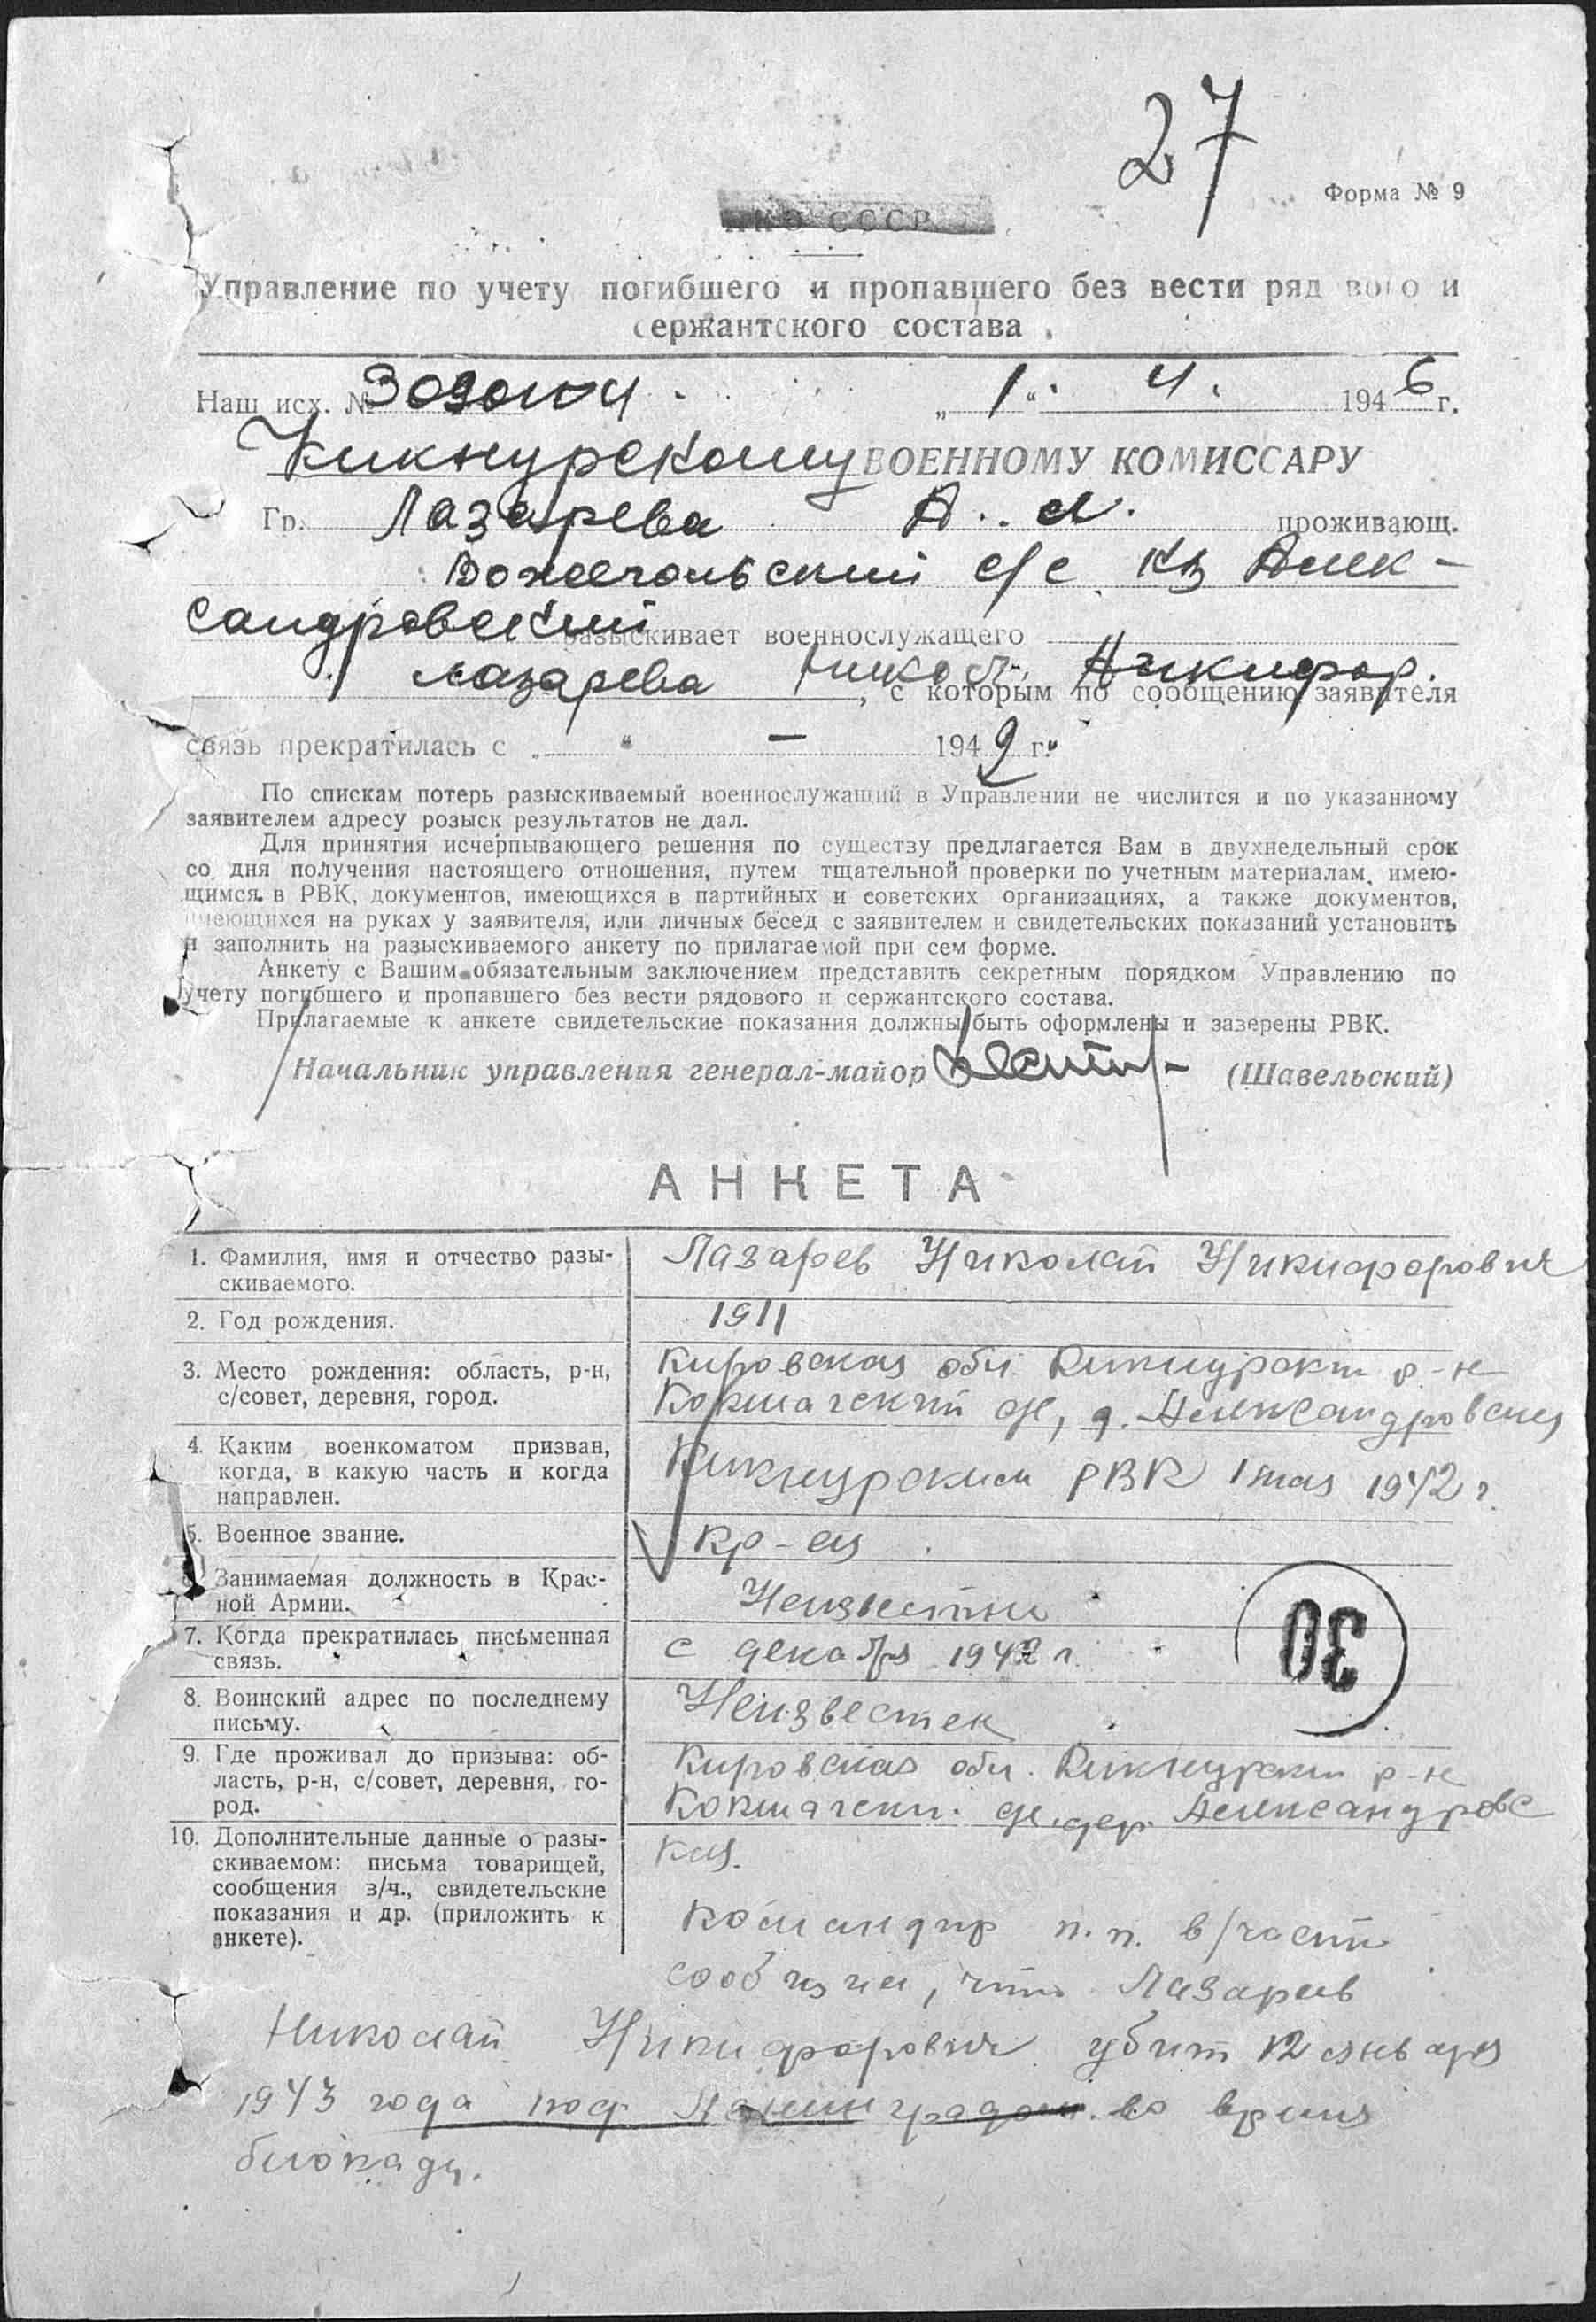 27
Форма № 9
НКО СССР
Управление по учету погибшего и пропавшего без вести рядового и
сержантского состава
Наш исх. № „1“ 4. 1946 г.
Кикнурскому ВОЕННОМУ КОМИССАРУ
Гр. Лазарева А. проживающ.
с/с Алек-
сандровский разыскивает военнослужащего
Лазарева Никол. Никифор., с которым по сообщению заявителя
связь прекратилась с „ “ — 1942 г.
По спискам потерь разыскиваемый военнослужащий в Управлении не числится и по указанному
заявителем адресу розыск результатов не дал.
Для принятия исчерпывающего решения по существу предлагается Вам в двухнедельный срок
со дня получения настоящего отношения, путем тщательной проверки по учетным материалам, имею-
щимся в РВК, документов, имеющихся в партийных и советских организациях, а также документов,
имеющихся на руках у заявителя, или личных бесед с заявителем и свидетельских показаний установить
и заполнить на разыскиваемого анкету по прилагаемой при сем форме.
Анкету с Вашим обязательным заключением представить секретным порядком Управлению по
учету погибшего и пропавшего без вести рядового и сержантского состава.
Прилагаемые к анкете свидетельские показания должны быть оформлены и заверены РВК.
Начальник управления генерал-майор (Шавельский)
АНКЕТА
1. Фамилия, имя и отчество разы-
скиваемого.
Лазарев Николай Никифорович
2. Год рождения.
1911
3. Место рождения: область, р-н,
с/совет, деревня, город.
Кировская обл. Кикнурский р-н
Кокшагский с/с, д. Александровская
4. Каким военкоматом призван,
когда, в какую часть и когда
направлен.
Кикнурским РВК 1 мая 1942 г.
5. Военное звание.
кр-ец
6. Занимаемая должность в Крас-
ной Армии.
Неизвестно
7. Когда прекратилась письменная
связь.
с декабря 1942 г.
8. Воинский адрес по последнему
письму.
Неизвестен
9. Где проживал до призыва: об-
ласть, р-н, с/совет, деревня, го-
род.
Кировская обл. Кикнурский р-н
Кокшагский с/с дер. Александровс
кая.
10. Дополнительные данные о разы-
скиваемом: письма товарищей,
сообщения з/ч., свидетельские
показания и др. (приложить к
анкете).
Командир п.п. в/части
сообщил, что Лазарев
Николай Никифорович убит 12 января
1943 года под Ленинградом во время
блокады.
30